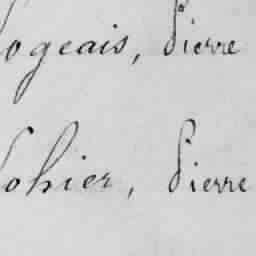 ogeais, Pierre
ohier, Pierre